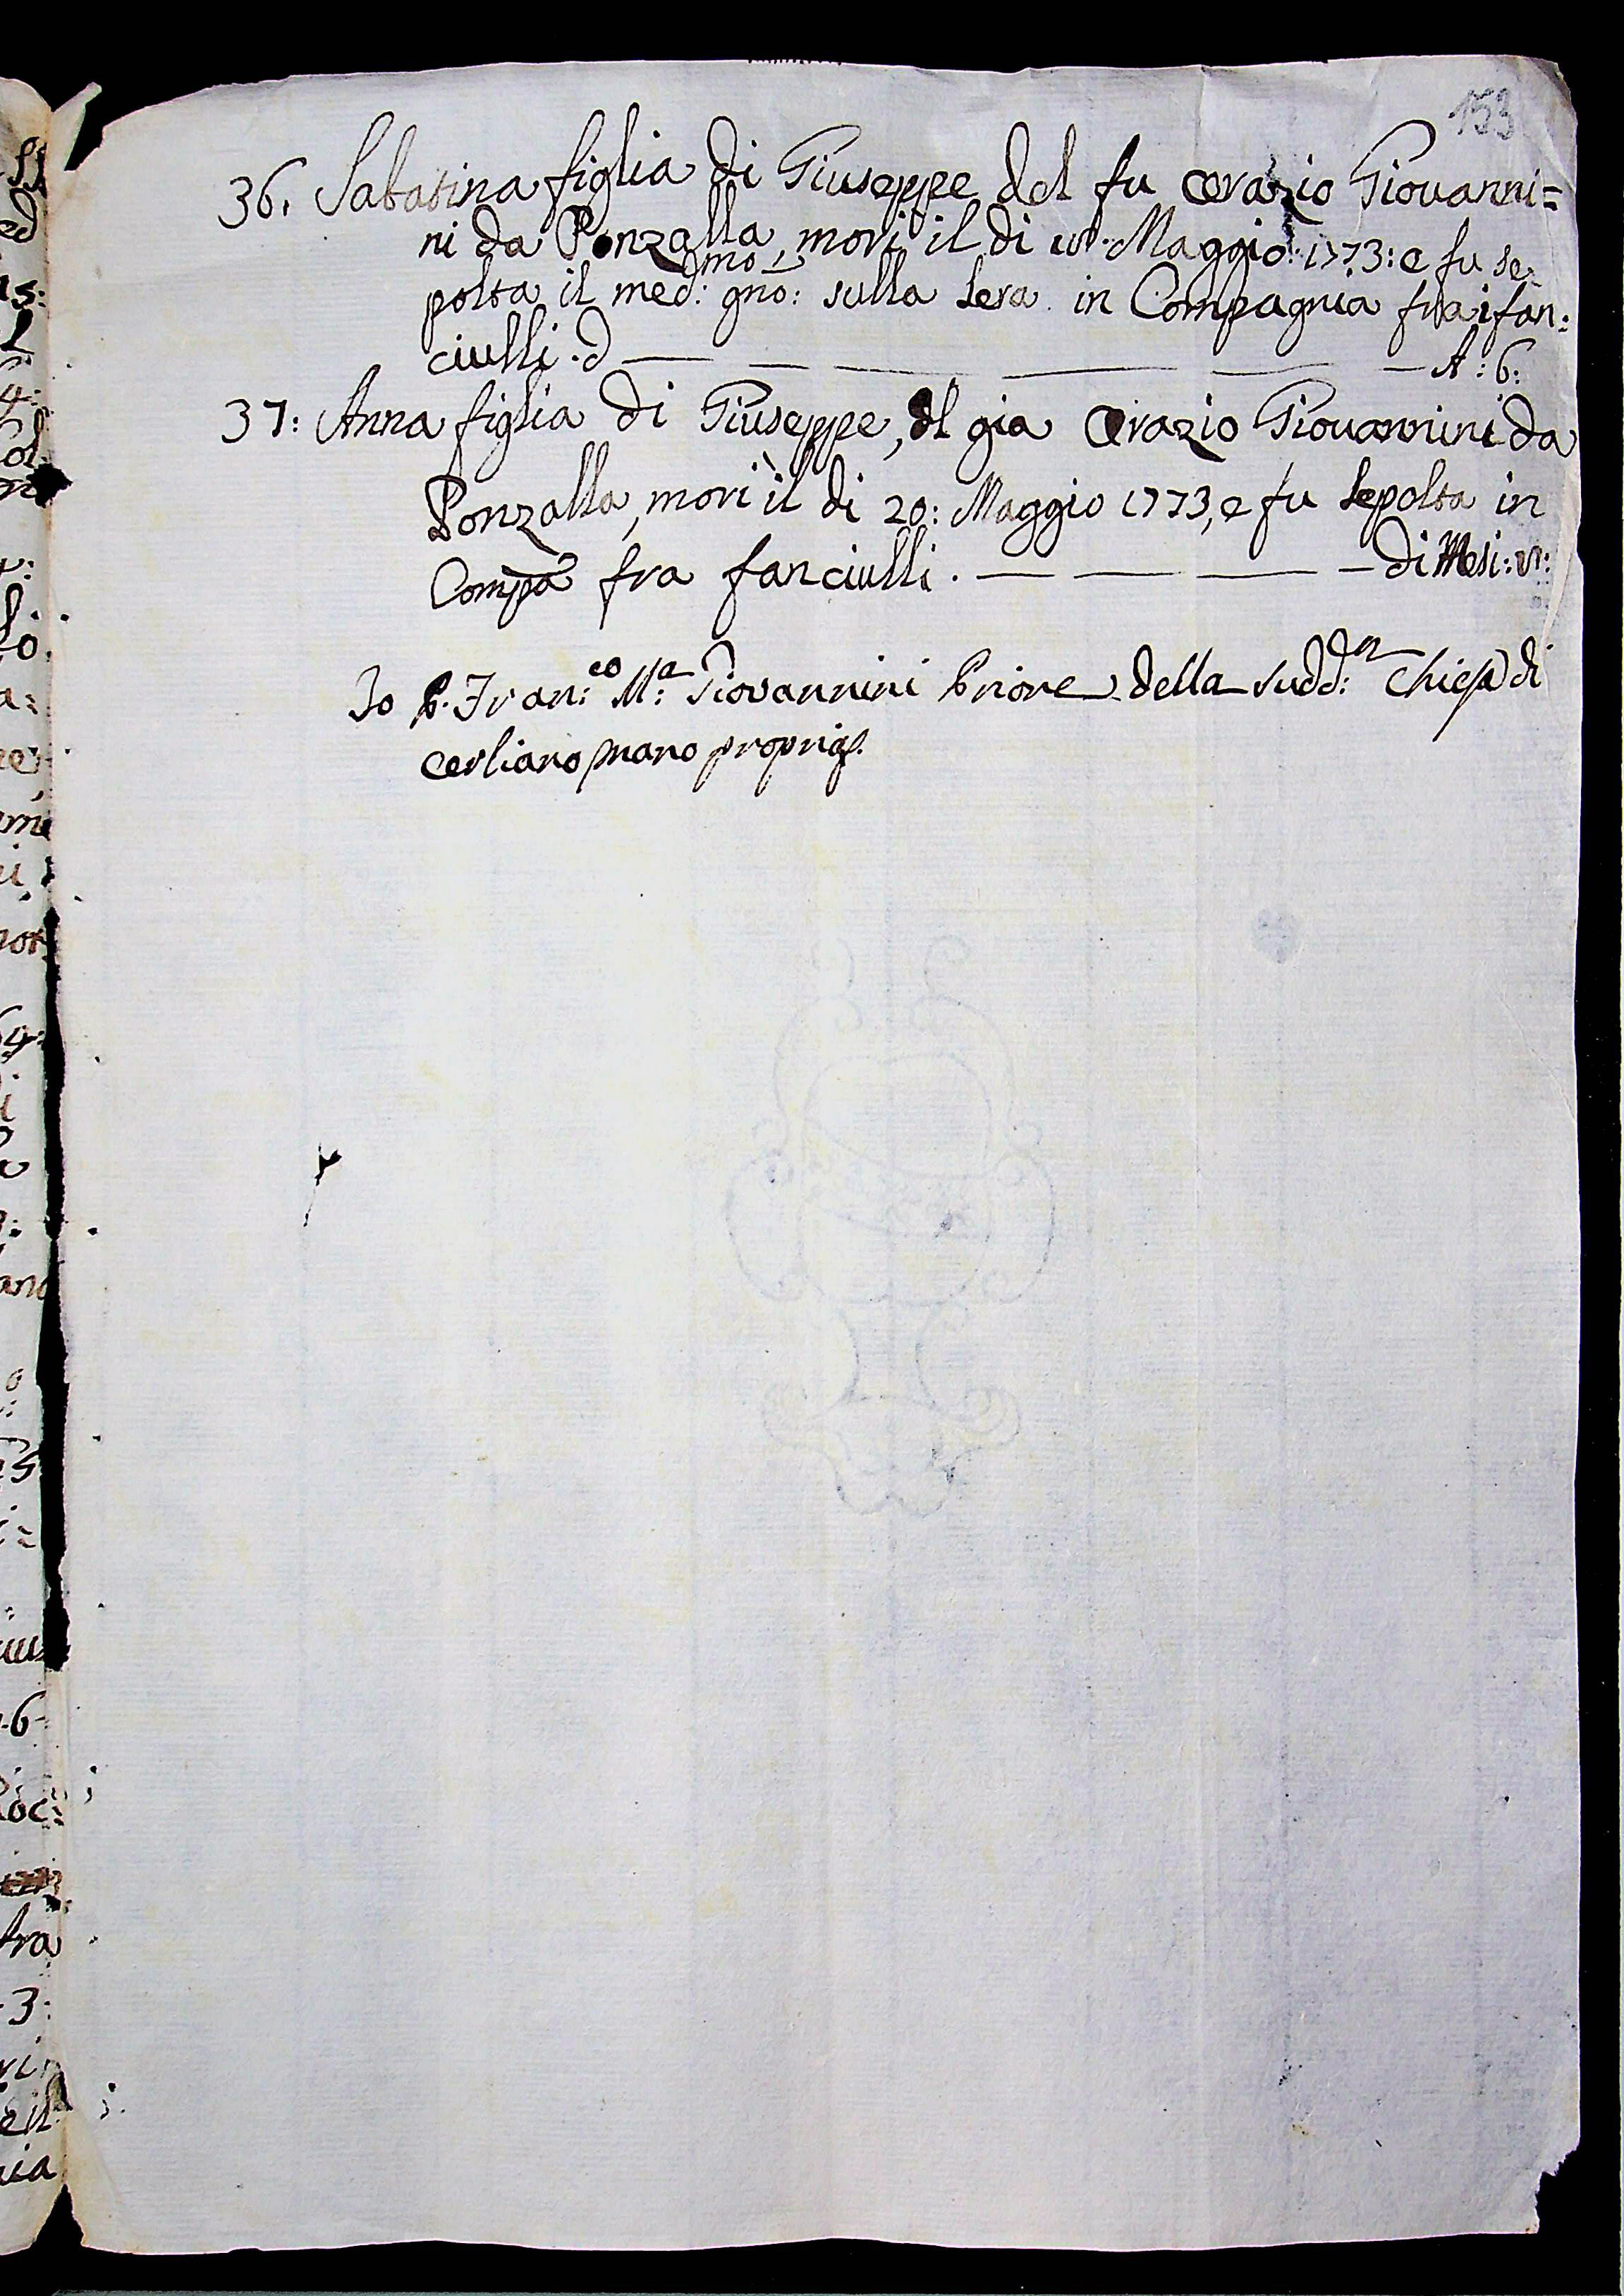 153
36. Sabatina figlia di Giuseppe del fu Orazio Giovanni=
ni da Ponzalla, morì il di Maggio: 1773: e fu se-
polta il med:mo gno: sulla sera in Compagnia fra i fan:
ciulli. A: 6:
37: Anna figlia di Giuseppe, del gia Orazio Giovannini da
Ponzalla, morì il di 20: Maggio 1773, e fu sepolta in
Compa fra fanciulli. di Mesi:
Io P. Fran:co M:a Giovannini Priore della sudd:a Chiesa di
Cerliano mano propria.